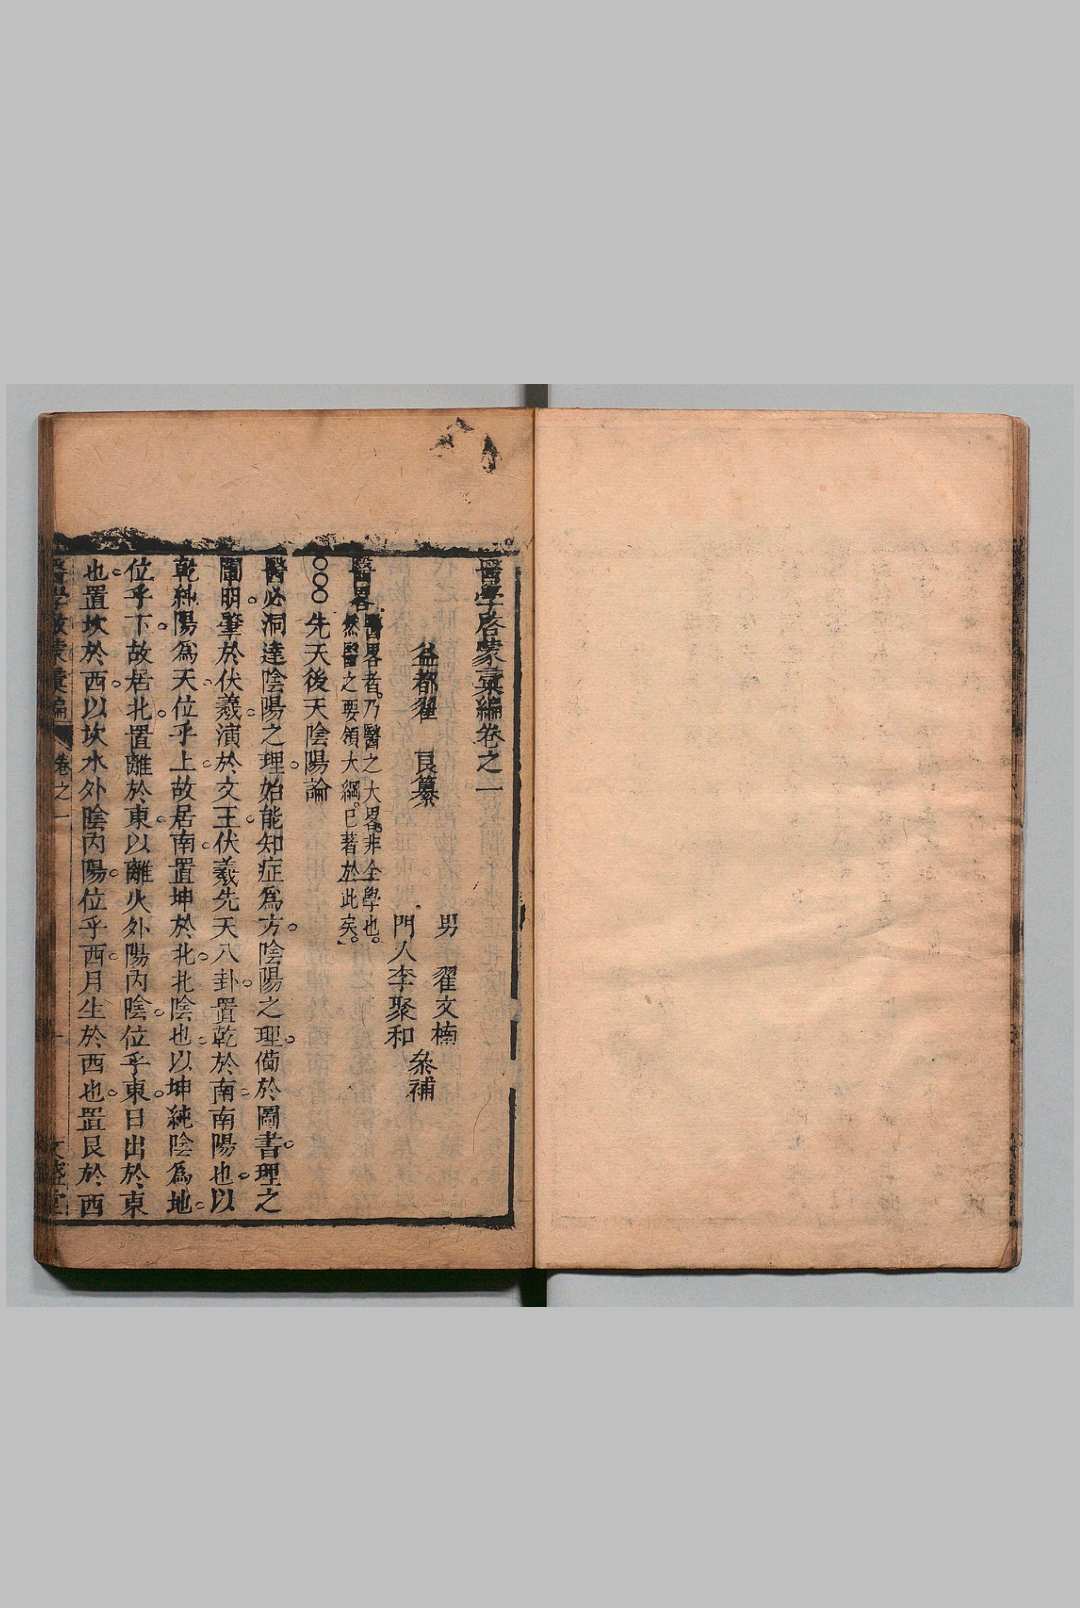 醫學啓蒙彙編卷之一
益都翟　良纂
男　翟文楠
門人李聚和
叅補
醫畧
醫畧者乃醫之大畧非全學也
然醫之要領大綱已著於此矣
○○○先天後天陰陽論
醫必洞達陰陽之理始能知症爲方陰陽之理俻於圖書理之
闡明肇於伏羲演於文王伏羲先天八卦置乾於南南陽也以
乾純陽爲天位乎上故居南置坤於北北陰也以坤純陰爲地
位乎下故居北置離於東以離火外陽內陰位乎東日出於東
也置坎於西以坎水外陰內陽位乎西月生於西也置艮於西
醫學啟蒙彙編　卷之一　文盛堂